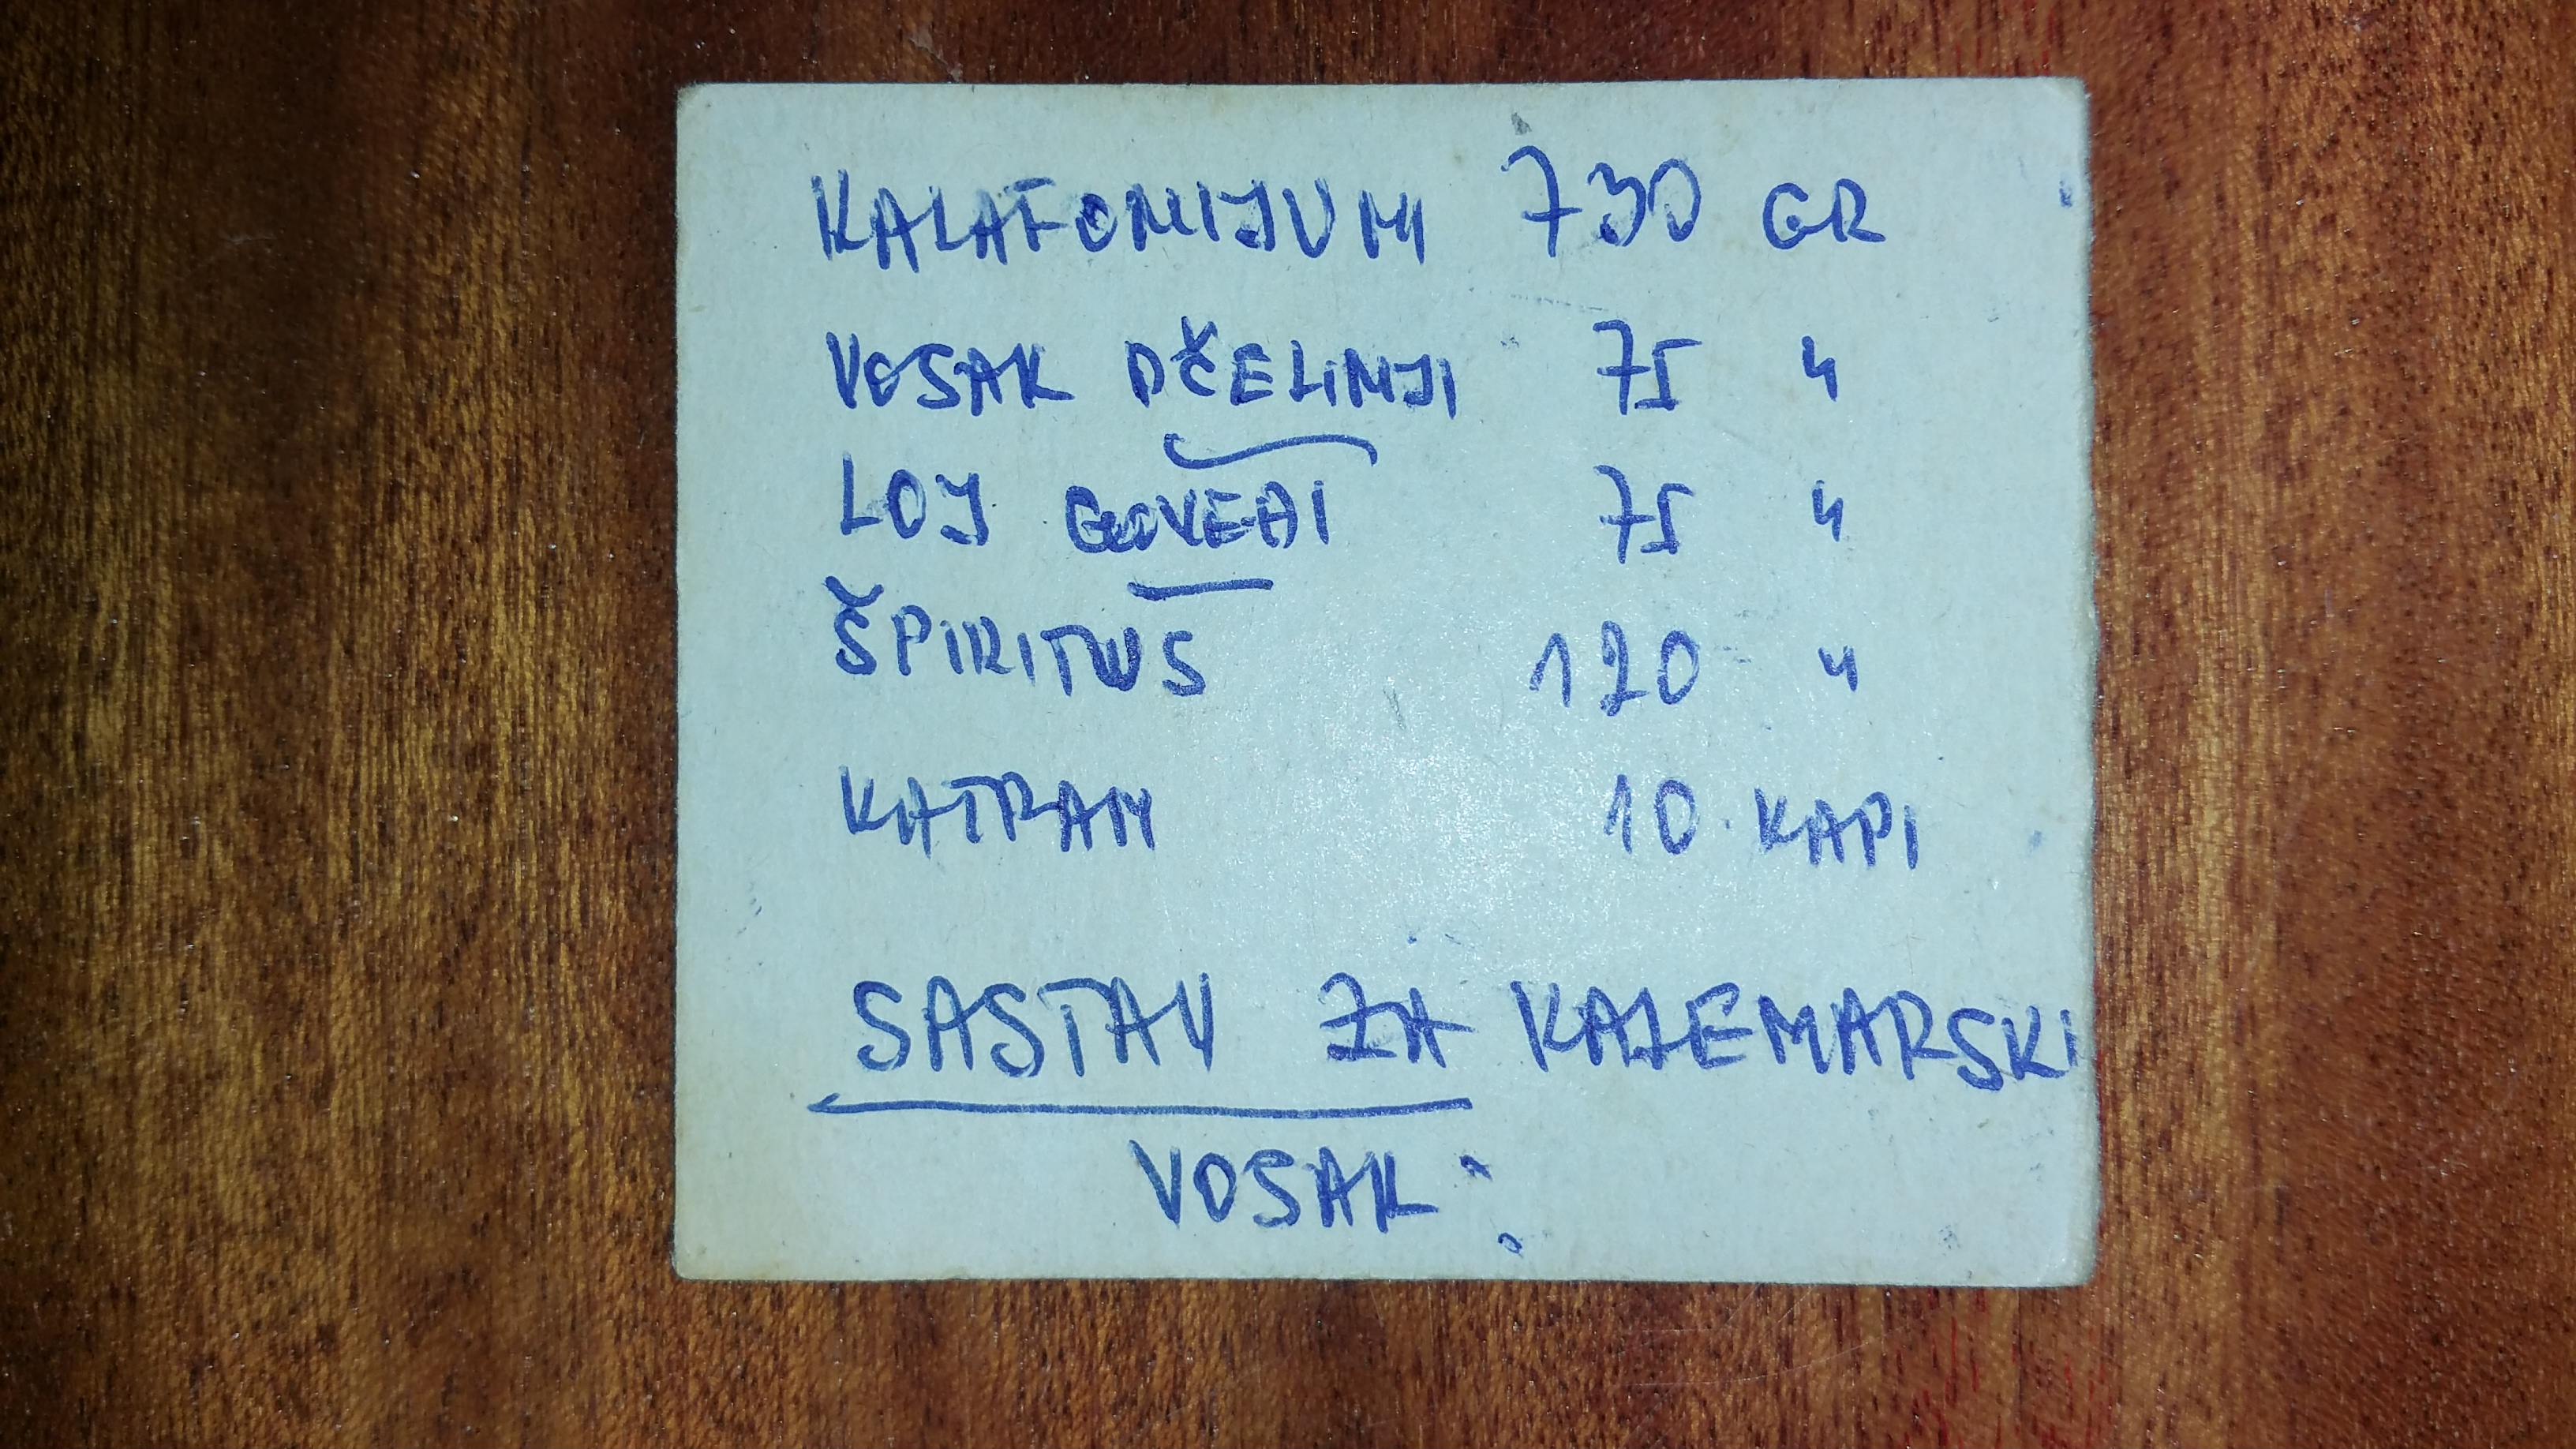 KALAFONIJUM 730 GR
VOSAK PČELINJI 75 "
LOJ GOVEĐI 75 "
ŠPIRITUS 120 "
KATRAN 10 KAPI
SASTAV ZA KALEMARSKI
VOSAK: